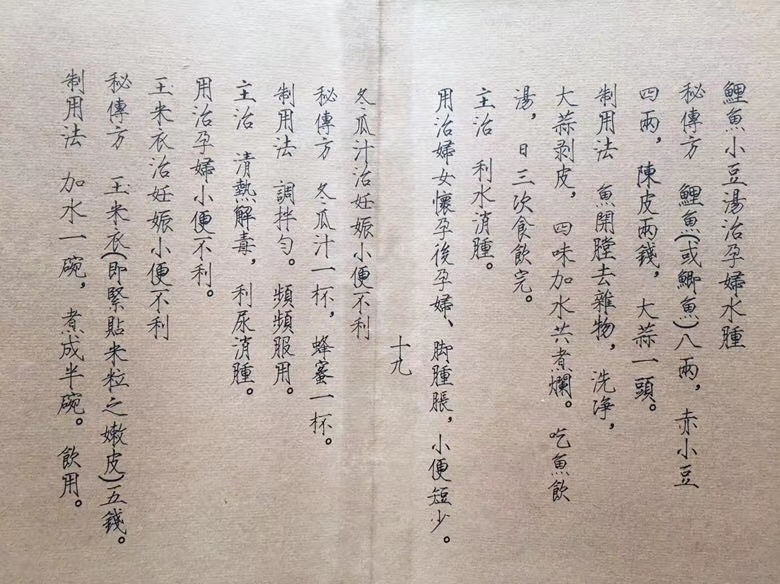 鯉魚小豆湯治孕婦水腫
秘傳方　鯉魚(或鯽魚)八兩，赤小豆
四兩，陳皮兩錢，大蒜一頭。
制用法　魚開膛去雜物，洗淨，
大蒜剥皮，四味加水共煮爛。吃魚飲
湯，日三次食飲完。
主治　利水消腫。
用治婦女懷孕後孕婦、脚腫脹，小便短少。
十九
冬瓜汁治妊娠小便不利
秘傳方　冬瓜汁一杯，蜂蜜一杯。
制用法　調拌勻。頻頻服用。
主治　清熱解毒，利尿消腫。
用治孕婦小便不利。
玉米衣治妊娠小便不利
秘傳方　玉米衣(即緊貼米粒之嫩皮)五錢。
制用法　加水一碗，煮成半碗。飲用。